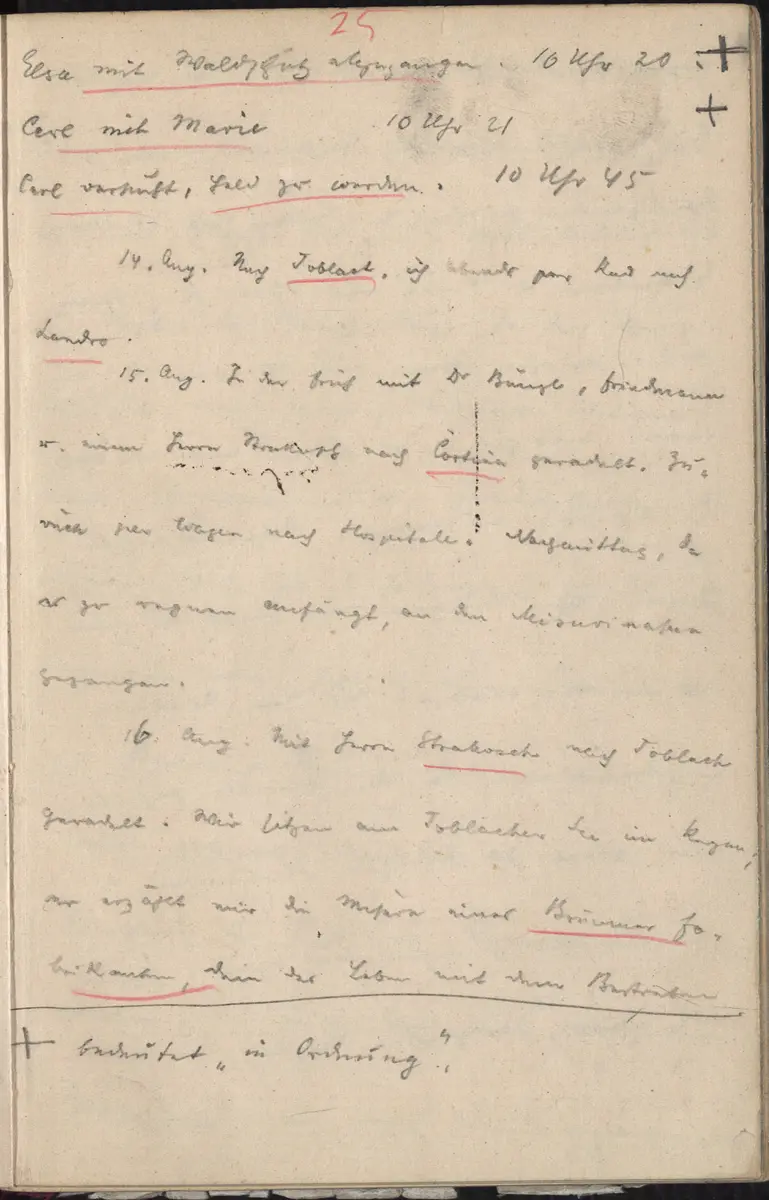 25
Elsa mit abgegangen. 10 Uhr 20 . +
Carl mit Marie 10 Uhr 21 +
Carl verheißt, bald zu werden. 10 Uhr 45
14. Aug. Nach Toblach, ich abends per Rad nach
Landro.
15. Aug. In der früh mit Dr , Friedmann
u. einem Herrn nach Cortina geradelt. Zu-
rück per Wagen nach Hospitale. Nachmittag, da
es zu regnen anfängt, an den Misurinasee
gegangen.
16. Aug. Mit Herrn Strakosch nach Toblach
geradelt. Wir sitzen am Toblacher See im Regen;
er erzählt mir die Misère eines Brünner Fa-
brikanten, dem das Leben mit dem Bestreben
+ bedeutet „in Ordnung“.